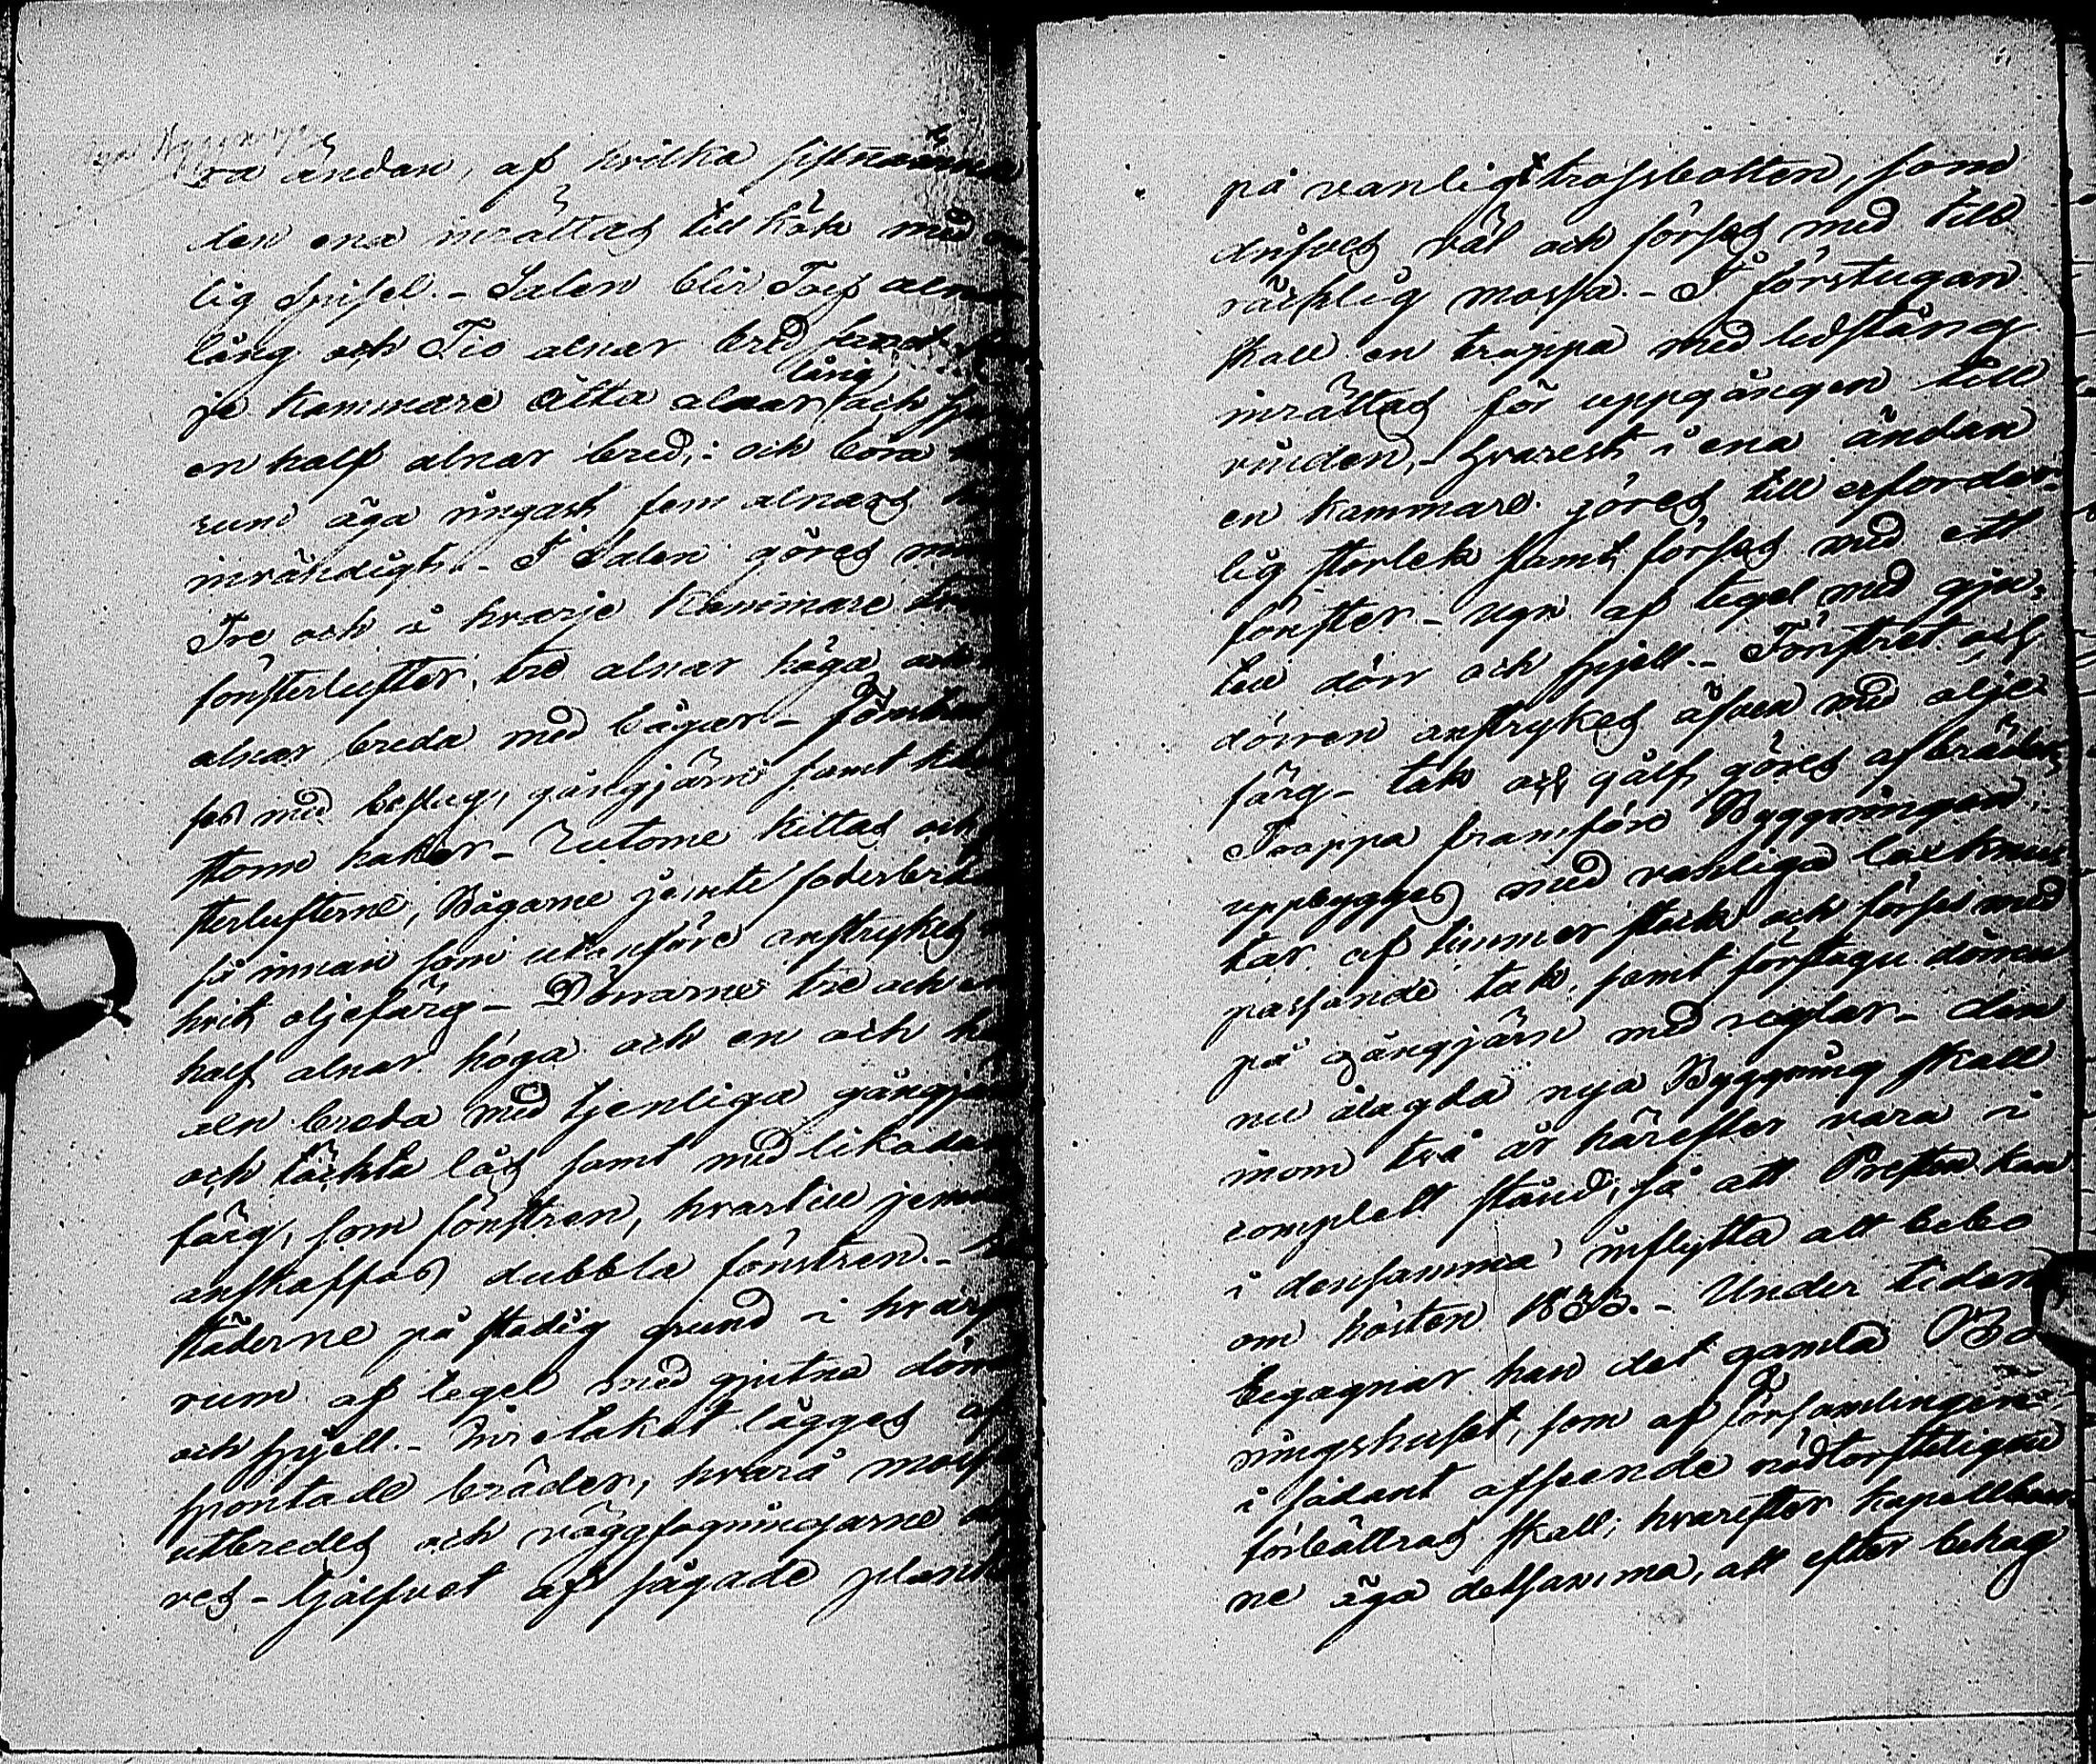 ra ändan, af hvilka sistnämnda
den ena inrättas till kök med
lig spisel. - Salen blir Tolf alnar
lång och Tio alnar bred samt
je kammare åtta alnar lång och
en half alnar bred; och böra
rum äga ringast fem alnars
invändigt. - I Salen göres
Tre och i hvarje Kammare
fönsterlufter, tre alnar höga och
alnar breda med bågar -
ses med beslag, gångjärn samt
storm hakar - Rutorne kittas och
sterlufterne, Bågarne jemte foderbräd
så innan som utanföre anstrykes
hvit oljefärg - Dörrarne tre och en
half alnar höga och en och
aln breda med tjenliga gångjärn
och täckta lås samt med likadan
färg, som fönstren, hvartill jemväl
anskaffas dubbla fönstren. -
städerne på stadig grund i hvarje
rum af tegel med gjutna
och spjell. - läggas af
spontade bräder, hvarå mossa
utbredes och väggfogningarne
res - af sågade plank
på vanlig trossbotten, som
drifves väl och förses med till
räcklig mossa. - I förstugan
skall en trappa med ledstång
inrättas för uppgången till
vinden, - hvarest i ena ändan
en kammare göres till erforder-
lig storlek samt förses med ett
fönster - ugn af tegel med gju-
ten dörr och spjell. - Fönstret och
dörren anstrykes äfven med olje
färg - tak och gålf göres af bräder
Trappa framföre Byggningen
uppbygges med vanliga laxknu-
tar af timmer stock och förses med
passande tak, samt förstugu dörren
på gångjärn med reglar - den
nu ålagda nya Byggning skall
inom två år härefter vara i
complett stånd, så att Presten kan
i densamma inflytta att bebo
om hösten 1833. - Under tiden
begagnar han det gamla Bo
ningshuset, som af församlingen
i sådant afseende nödtorfteligen
förbättras skall; hvarefter kapellboer
ne äga detsamma, att efter behag